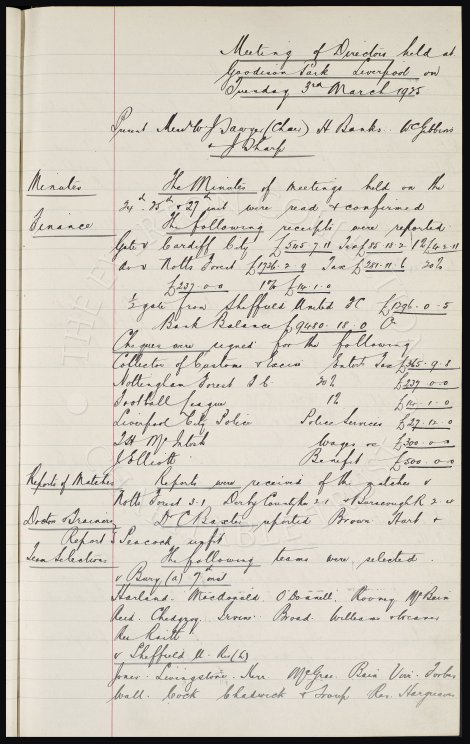 Meeting of Directors held at
Goodison Park Liverpool on
Tuesday 3rd March 1925
Present Messrs W J Sawyer (Chair) H Banks. W C Gibbins
& J Sharp
Minutes
The Minutes of meetings held on the
24th 25th & 27th inst were read & confirmed
Finance
The following receipts were reported
Gate v Cardiff City £545-7-11 Tax £85-18-2 1% £4-2-11
do v Notts Forest £1736-2-9 Tax £281-11-6 20%
£237-0-0 1% £14-1-0
½ gate from Sheffield United FC £1296-0-5
Bank Balance £9480-18-0
Cheques were signed for the following
Collector of Customs & Excise Entert Tax £365-9-8
Nottingham Forest F C 20% £237-0-0
Football League 1% £14-1-0
Liverpool City Police Police Services £27-12-0
T H McIntosh Wages &c £300-0-0
J Elliott Benefit £500-0-0
Reports of Matches
Reports were received of the matches v
Notts Forest 3-1 Derby County Res 2-1 & Burscough R 2-4
Doctor & Trainers
Report
Dr C Baxter reported Brown Hart &
Peacock unfit
Team Selections
The following teams were selected
v Bury (a) 7th inst
Harland. Macdonald. O'Donnell. Rooney McBain
Reid. Chedgzoy. Irvine. Broad. Williams &
Res Raitt
v Sheffield U. Res (h)
Jones. Livingstone. Kerr McGrae. Bain Virr. Forbes
Wall. Cock Chadwick & Troup Res. Hargreaves